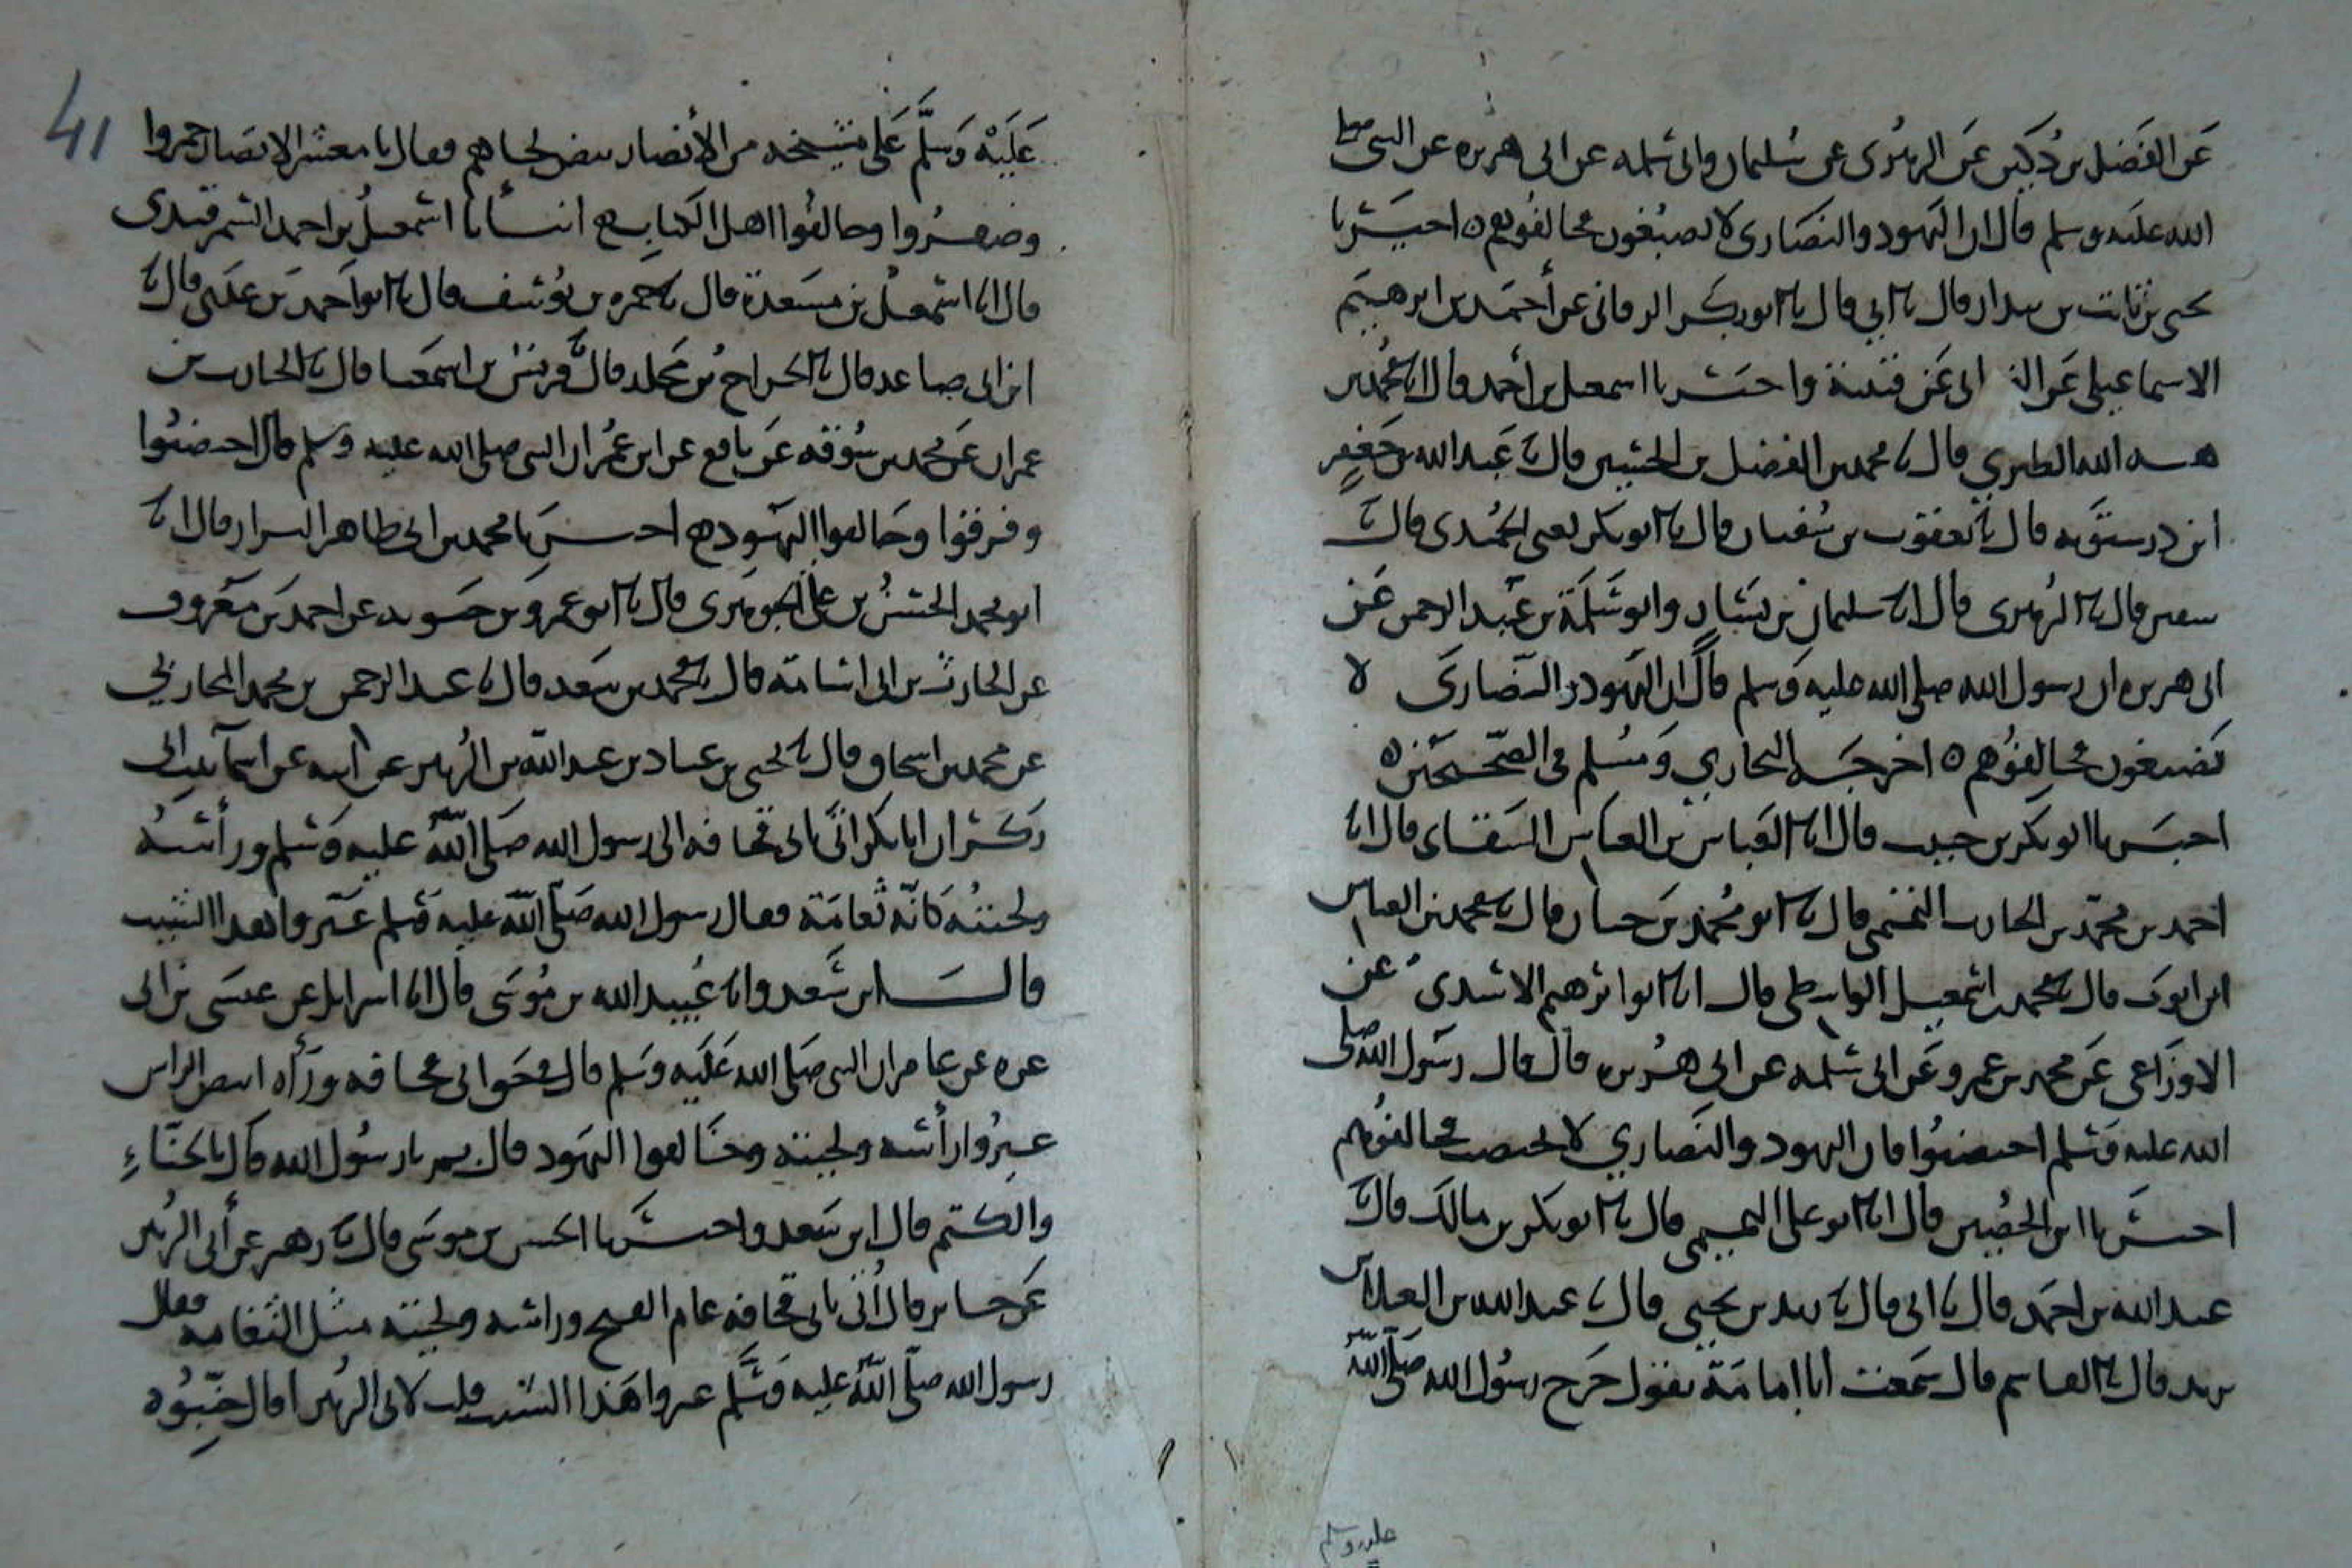 عن الفضل بن دكين عن الزهري عن سليمان وابي سلمه عن ابي هريره عن النبي صلى
الله عليه وسلم قال ان اليهود والنصارى لا يصبغون فخالفوهم ه اخبرنا
يحيى بن ثابت بن بندار قال نا ابي قال نا ابو بكر البرقاني عن أحمد بن ابرهيم
الاسماعيلي عن ابي عن قتيبة واخبرنا اسمعيل بن أحمد قال انا محمد بن
هبة الله الطبري قال نا محمد بن الفضل بن الحسين قال نا عبد الله بن جعفر
ابن درستويه قال نا يعقوب بن سفيان قال نا ابو بكر يعني الحميدي قال نا
سفين قال نا الزهري قال انا سليمان بن يسار وابو سلمة بن عبد الرحمن عن
ابي هريره ان رسول الله صلى الله عليه وسلم قال ان اليهود والنصارى لا
يصبغون فخالفوهم ه اخرجه البخاري ومسلم في الصحيحين ه
اخبرنا ابو بكر بن حبيب قال انا العباس بن ابي العباس السقاى قال انا
احمد بن محمد بن الحارث التميمي قال نا ابو محمد بن حيان قال نا محمد بن العباس
ابن ايوب قال نا محمد بن اسمعيل الواسطي قال انا ابو ابرهيم الاسدي عن
الاوزاعي عن محمد بن عمرو عن ابي سلمه عن ابي هريره قال قال رسول الله صلى
الله عليه وسلم اختضبوا فان اليهود والنصاري لا تختضب فخالفوهم
اخبرنا ابن الحصين قال انا ابو علي التميمي قال نا ابو بكر بن مالك قال نا
عبد الله بن احمد قال نا ابي قال نا زيد بن يحيى قال نا عبد الله بن العلاء بن
زيد قال نا القاسم قال سمعت أبا امامة يقول خرج رسول الله صلى الله
عليه وسلم
41
عليه وسلم على مشيخه من الأنصار بيض لحاهم فقال يا معشر الانصار حمروا
وصفروا وخالفوا اهل الكتاب ه انبأنا اسمعيل بن احمد السمرقندي
قال انا اسمعيل بن مسعدة قال نا حمزه بن يوسف قال نا ابو احمد بن عدي قال نا
ابن ابي صاعد قال نا الجراح بن مخلد قال نا قريش بن اسمعيل قال نا الحارث بن
عمران عن محمد بن سوقه عن نافع عن ابن عمر ان النبي صلى الله عليه وسلم قال اختضبوا
وفرقوا وخالفوا اليهود ه اخبرنا محمد بن ابي طاهر البزار قال انا
ابو محمد الحسن بن علي الجوهري قال نا ابو عمرو بن حيويه عن احمد بن معروف
عن الحارث بن ابي اسامة قال نا محمد بن سعد قال نا عبد الرحمن بن محمد المحاربي
عن محمد بن اسحاق قال نا يحيى بن عباد بن عبد الله بن الزبير عن ابيه عن اسما بنت ابي
بكر ان ابا بكر اتى بابي قحافه الى رسول الله صلى الله عليه وسلم ورأسه
ولحيته كانه ثغامة فقال رسول الله صلى الله عليه وسلم غيروا هذا الشيب
قال ابن سعد وانا عبيد الله بن موسى قال انا اسرايل عن عيسى بن ابي
عزه عن عامر ان النبي صلى الله عليه وسلم قال في ابي قحافه ورآه ابيض الراس
غيروا رأسه ولحيته وخالفوا اليهود قال بم يا رسول الله قال بالحناء
والكتم قال ابن سعد واخبرنا الحسن بن موسى قال نا زهير عن أبي الزبير
عن جابر قال أتى بابي قحافه عام الفتح وراسه ولحيته مثل الثغامه فقال
رسول الله صلى الله عليه وسلم غيروا هذا الشيب قلت لابي الزبير اقال جنبوه